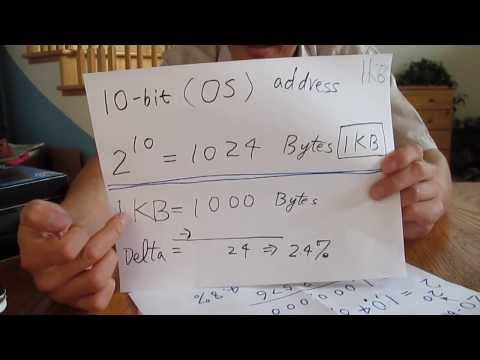 1KB
10-bit (OS) address
2^10 = 1024 Bytes 1KB
1KB = 1000 Bytes
Delta = → 24 ⇒ 2.4%